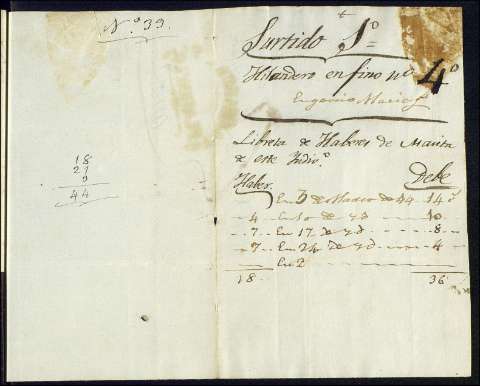 N.º 39.
18
21
9
44
Surtido 1º
Hilandero en fino nº 4º
Eugenio Macias
Libreta de Haberes de Maita
de este Indiv.º
Haber. Debe
En 3 de Marzo de 94 14
4 En 10 de yd 10
7 En 17 de yd 8
7 En 24 de yd 4
En 2
18 36